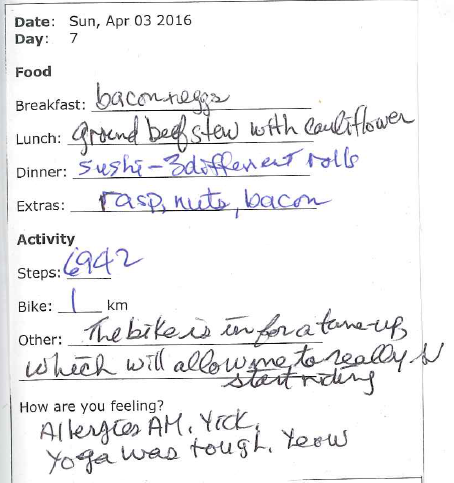 Date: Sun, Apr 03 2016
Day: 7
Food
Breakfast: bacon + eggs
Lunch: ground beef stew with cauliflower
Dinner: sushi - 3 different rolls
Extras: rasp, nuts, bacon
Activity
Steps: 6942
Bike: 1 km
Other: The bike is in for a tune-up,
which will allow me to really
start riding
How are you feeling?
Allergies AM. Yick.
Yoga was tough. Yeow